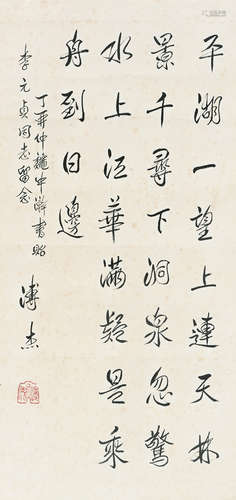 平湖一望上連天林
景千尋下洞泉忽驚
水上光華滿疑是乘
舟到日邊
丁仲穐書貽
李元貞同志留念
溥杰